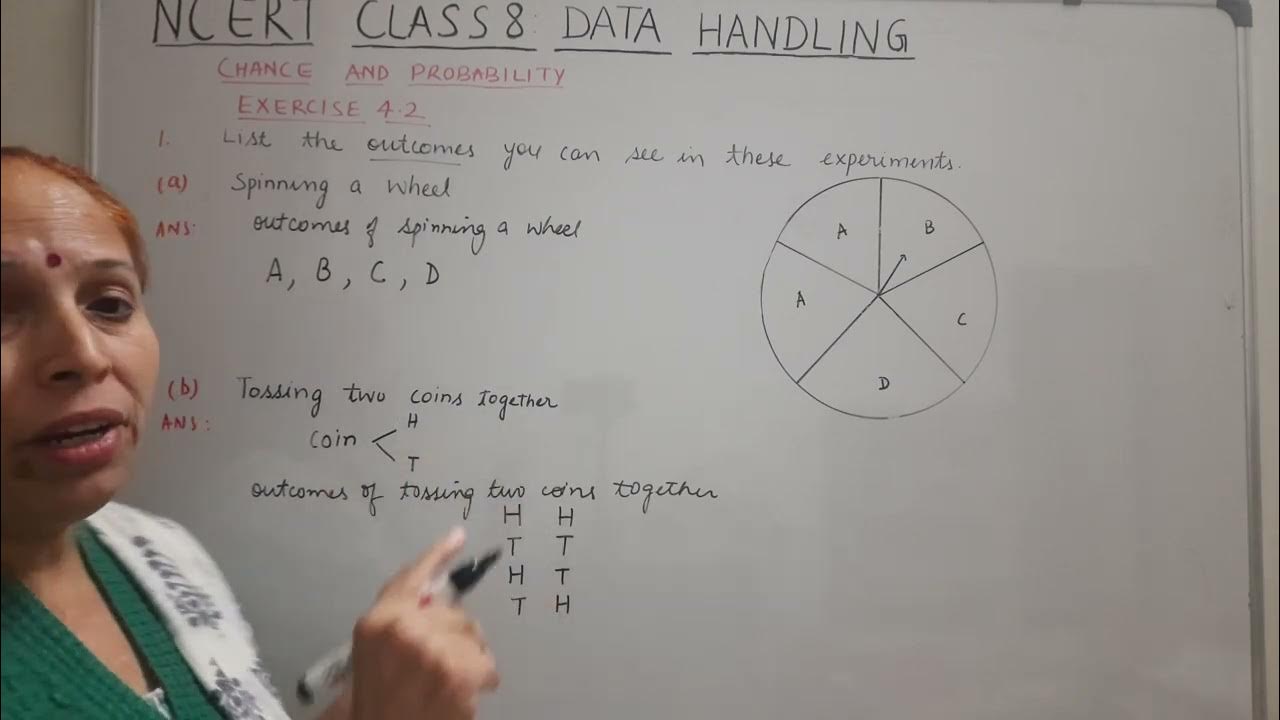 NCERT CLASS 8: DATA HANDLING
CHANCE AND PROBABILITY
EXERCISE 4.2
1. List the outcomes you can see in these experiments.
(a) Spinning a wheel
ANS: outcomes of spinning a wheel
A, B, C, D
A
B
A
C
D
(b) Tossing two coins together
ANS:
coin
H
T
outcomes of tossing two coins together
H H
T T
H T
T H